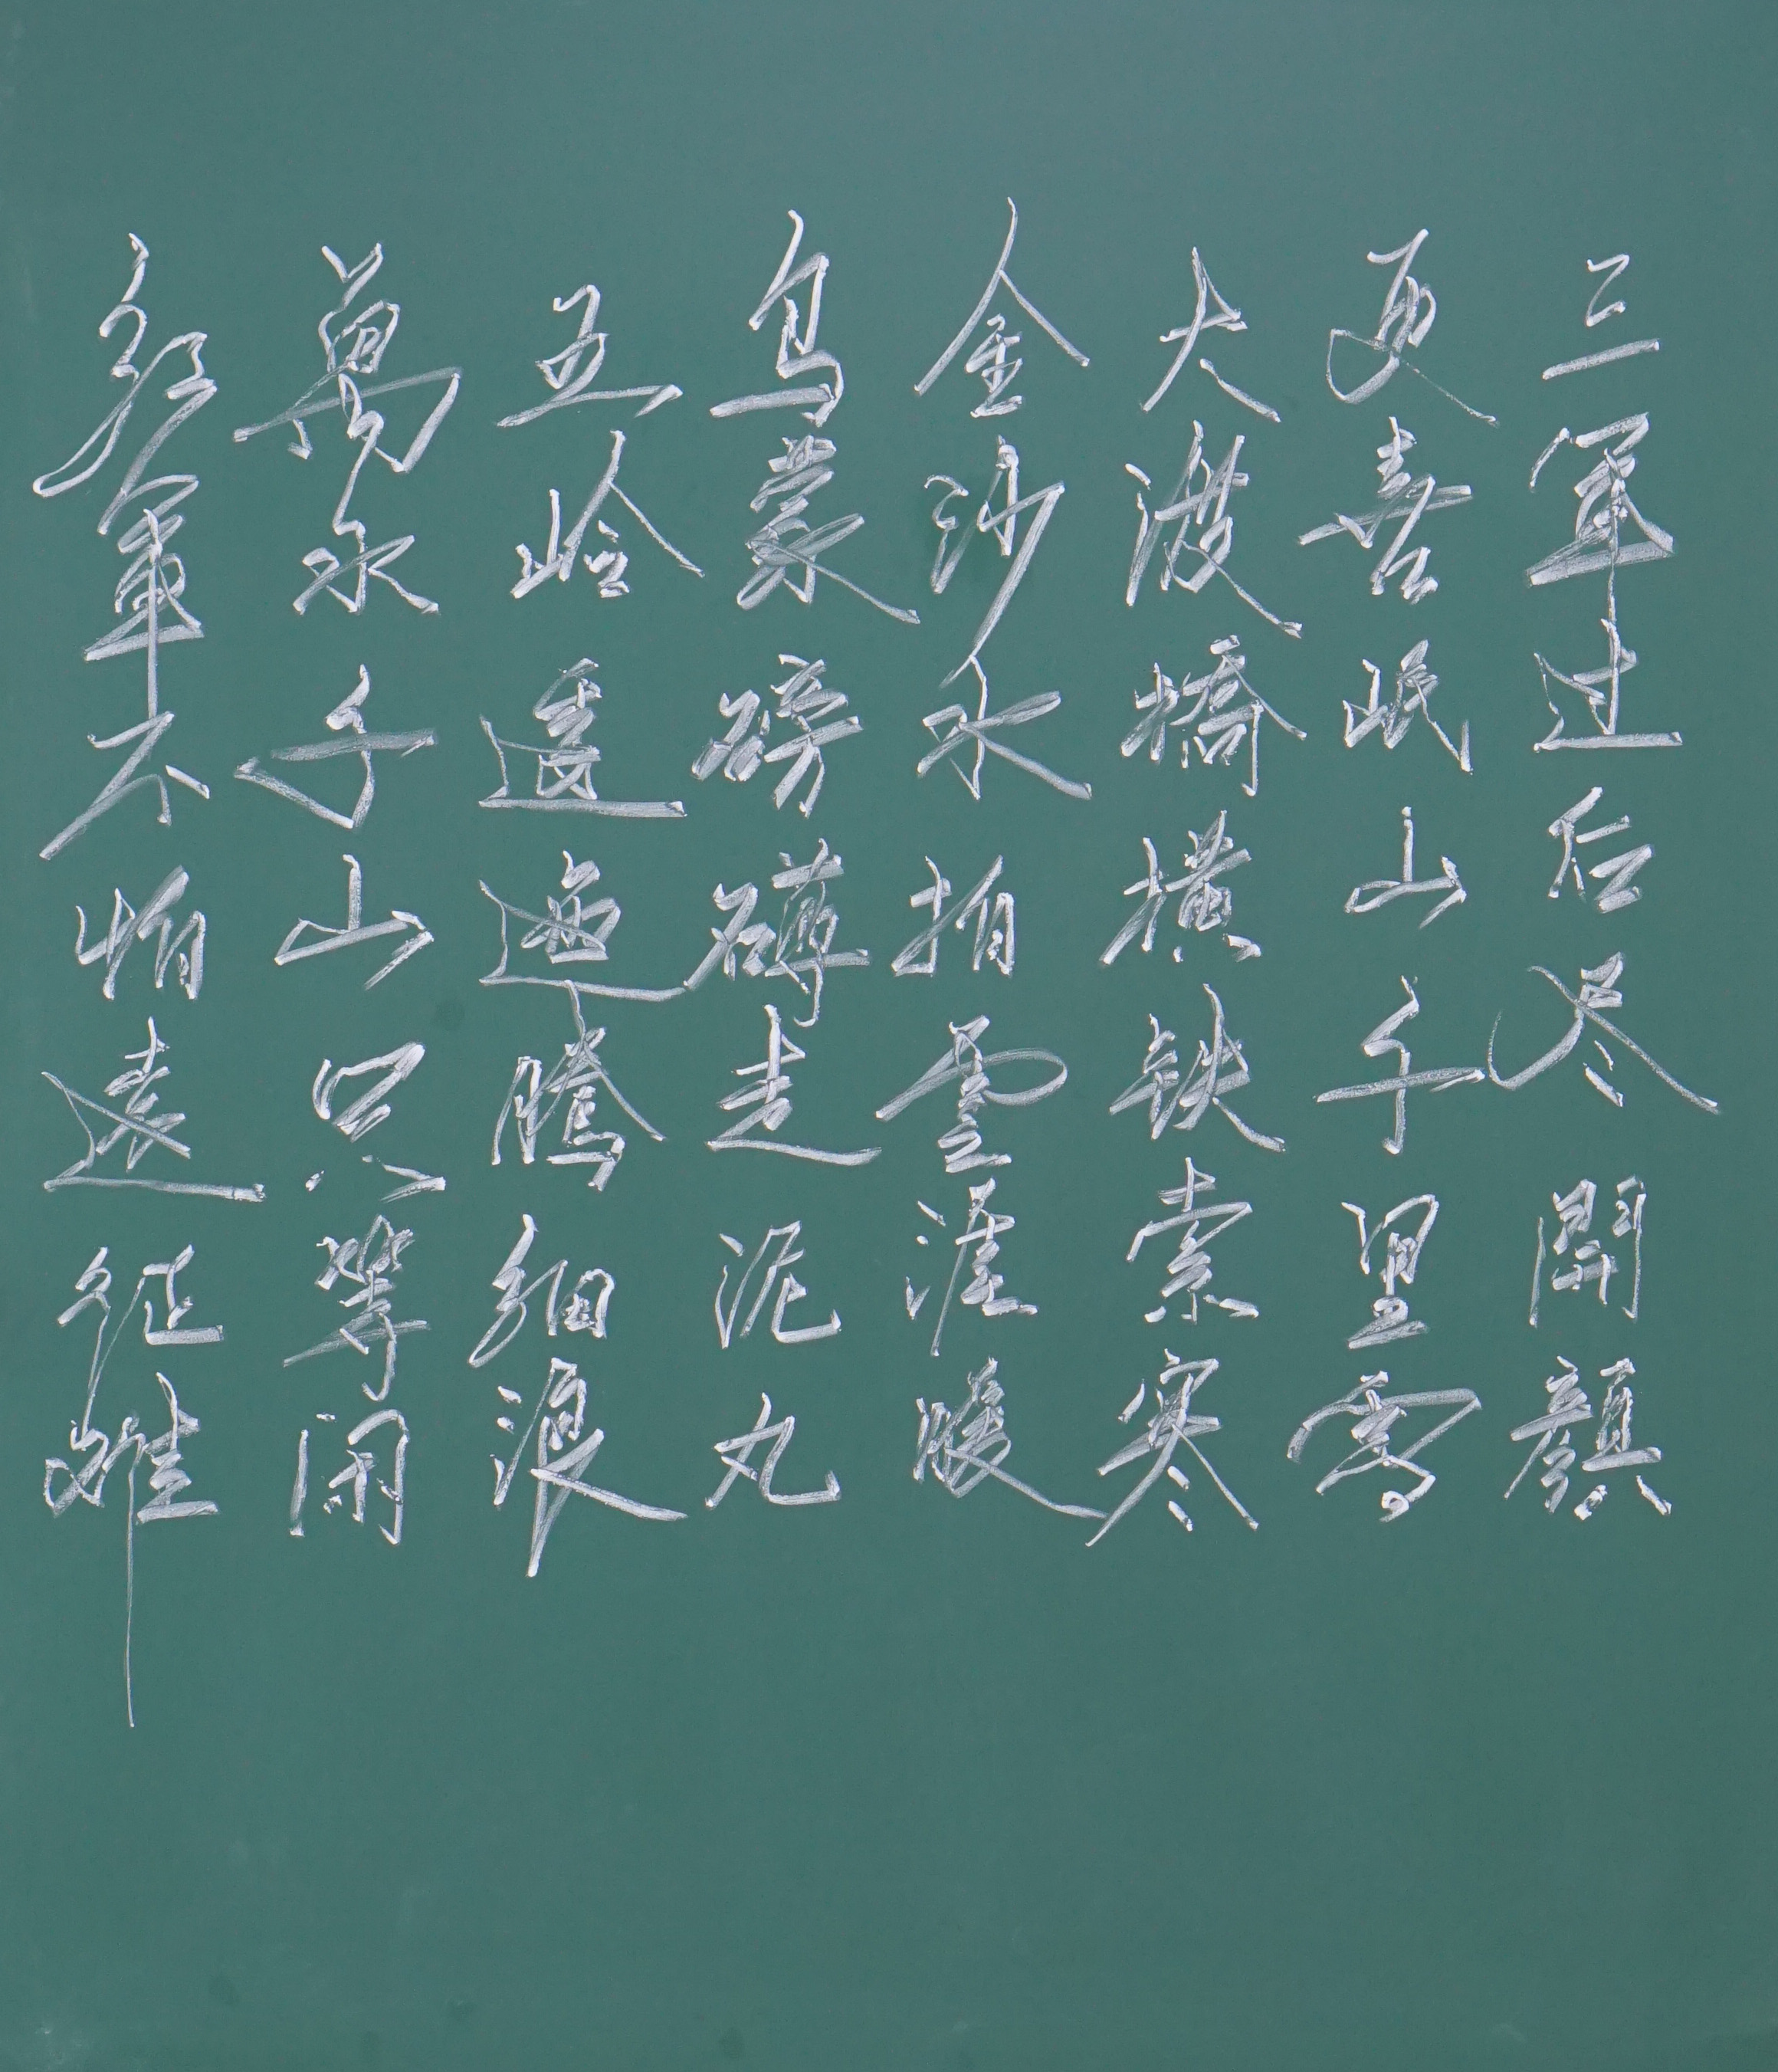 红軍不怕遠征难
萬水千山只等闲
五岭逶迤腾细浪
乌蒙磅礴走泥丸
金沙水拍雲涯暖
大渡橋横铁索寒
更喜岷山千里雪
三軍过后尽開顔